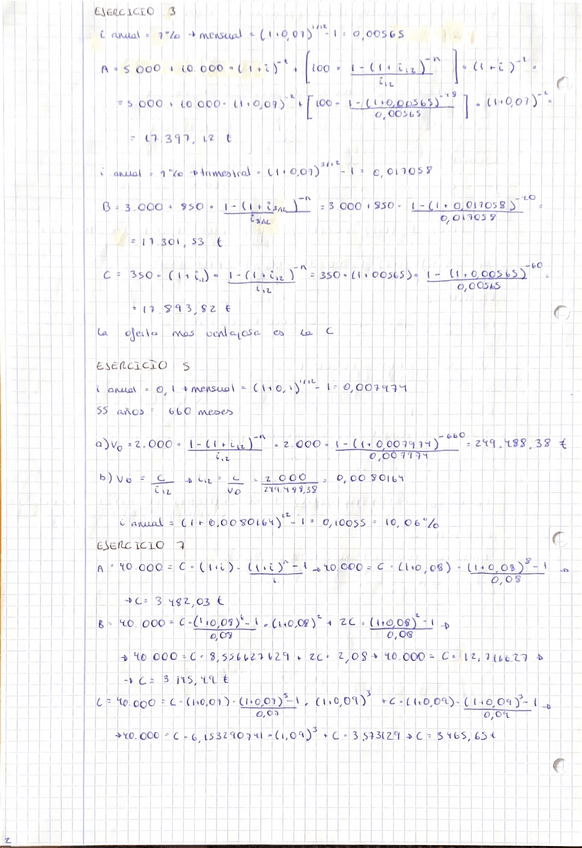 EJERCICIO 3
i anual = 7% → mensual = (1+0,07)^1/12 - 1 = 0,00565
A = 5 000 + 10.000 · (1+i)^-2 + [100 · 1-(1+i12)^-n / i12] · (1+i)^-2 =
= 5 000 + 10 000 · (1+0,07)^-2 + [100 · 1-(1+0,00565)^-48 / 0,00565] · (1+0,07)^-2 =
= 17.397,12 €
i anual = 7% → trimestral = (1+0,07)^3/12 - 1 = 0,017058
B = 3.000 + 850 · 1-(1+i3/12)^-n / i3/12 = 3 000 + 850 · 1-(1+0,017058)^-20 / 0,017058 =
= 17 301,53 €
C = 350 · (1+i12) · 1-(1+i12)^-n / i12 = 350 · (1+00565) · 1-(1+0,00565)^-60 / 0,00565 =
= 17 893,82 €
La oferta mas ventajosa es la C
EJERCICIO 5
i anual = 0,1 → mensual = (1+0,1)^1/12 - 1 = 0,007974
55 años = 660 meses
a) V0 = 2.000 · 1-(1+i12)^-n / i12 = 2.000 · 1-(1+0,007974)^-660 / 0,007974 = 249.488,38 €
b) V0 = C / i12 → i12 = C / V0 = 2 000 / 249.488,38 = 0,0080164
i anual = (1+0,0080164)^12 - 1 = 0,10055 = 10,06%
EJERCICIO 7
A = 40.000 = C · (1+i) · (1+i)^n - 1 / i → 40.000 = C · (1+0,08) · (1+0,08)^8 - 1 / 0,08 →
→ C = 3 482,03 €
B = 40.000 = C · (1+0,08)^6 - 1 / 0,08 · (1+0,08)^2 + 2C · (1+0,08)^2 - 1 / 0,08 →
→ 40 000 = C · 8,556627629 + 2C · 2,08 → 40.000 = C · 12,716627 →
→ C = 3 145,49 €
C = 40.000 = C · (1+0,07) · (1+0,07)^5 - 1 / 0,07 · (1+0,09)^3 + C · (1+0,09) · (1+0,09)^3 - 1 / 0,09 →
→ 40.000 = C · 6,153290741 · (1,09)^3 + C · 3,573129 → C = 3465,65 €
2